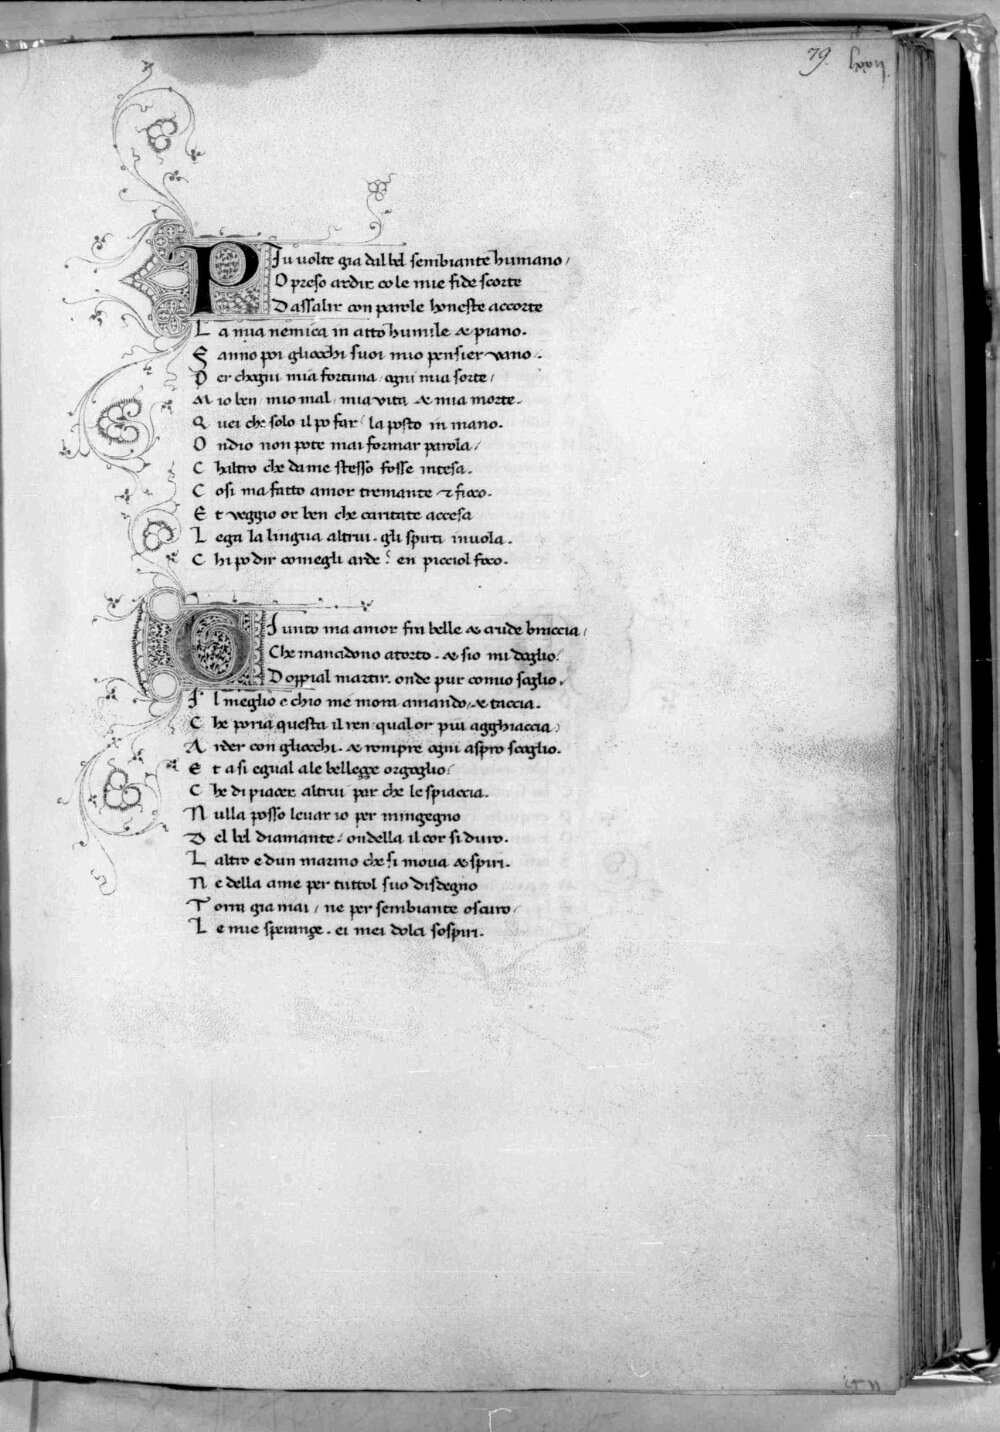 79.
Piu uolte gia dal bel sembiante humano /
O preso ardir co le mie fide scorte
Dassalir con parole honeste accorte
La mia nemica in atto humile & piano.
Fanno poi gliocchi suoi mio pensier vano.
Per chogni mia fortuna / ogni mia sorte /
Mio ben / mio mal / mia vita & mia morte.
Quei che solo il po far / la posto in mano.
Ondio non pote mai formar parola /
Chaltro che da me stesso fosse intesa.
Cosi ma fatto amor tremante & fioco.
Et veggio or ben che caritate accesa
Lega la lingua altrui . gli spirti inuola.
Chi po dir comegli arde : en picciol foco.
Giunto ma amor fra belle & crude braccia /
Che mancidono a torto . & sio mi doglio /
Doppial martir . onde pur comio soglio.
Il meglio e chio me mora amando / & taccia.
Che poria questa il ren / qual or piu agghiaccia /
Arder con gliocchi . & rompre ogni aspro scoglio.
Et a si egual a le bellezze orgoglio /
Che di piacer altrui par che le spiaccia.
Nulla posso leuar io per mingegno
Del bel diamante / ondella il cor si duro.
Laltro e dun marmo che si moua & spiri.
Ne della a me per tuttol suo disdegno
Torra gia mai / ne per sembiante oscuro /
Le mie speranze . ei mei dolci sospiri.